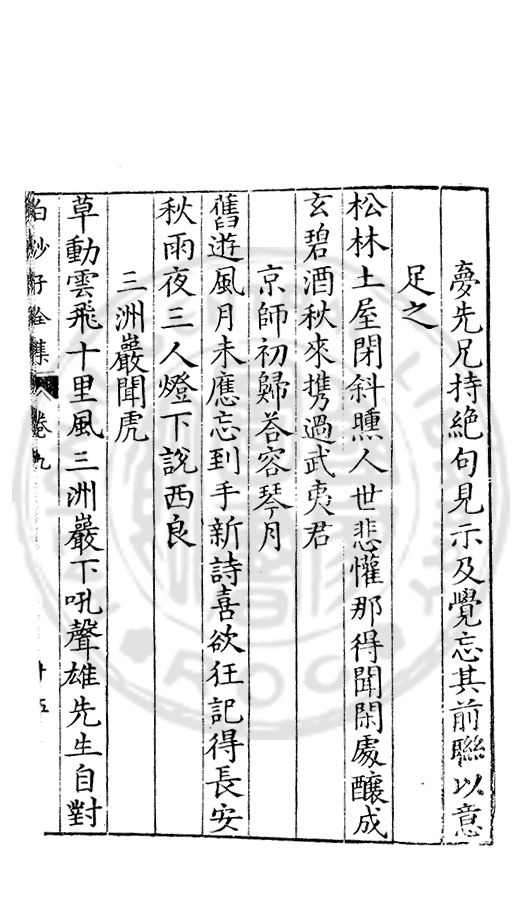 夣先兄持絶句見示及覺忘其前聯以意
足之
松林土屋閉斜曛人世悲懽那得聞閑處釀成
玄碧酒秋來携過武夷君
京師初歸荅容琴月
舊遊風月未應忘到手新詩喜欲狂記得長安
秋雨夜三人燈下說西良
三洲巖聞虎
草動雲飛十里風三洲巖下吼聲雄先生自對
白沙子全集 卷九 十五